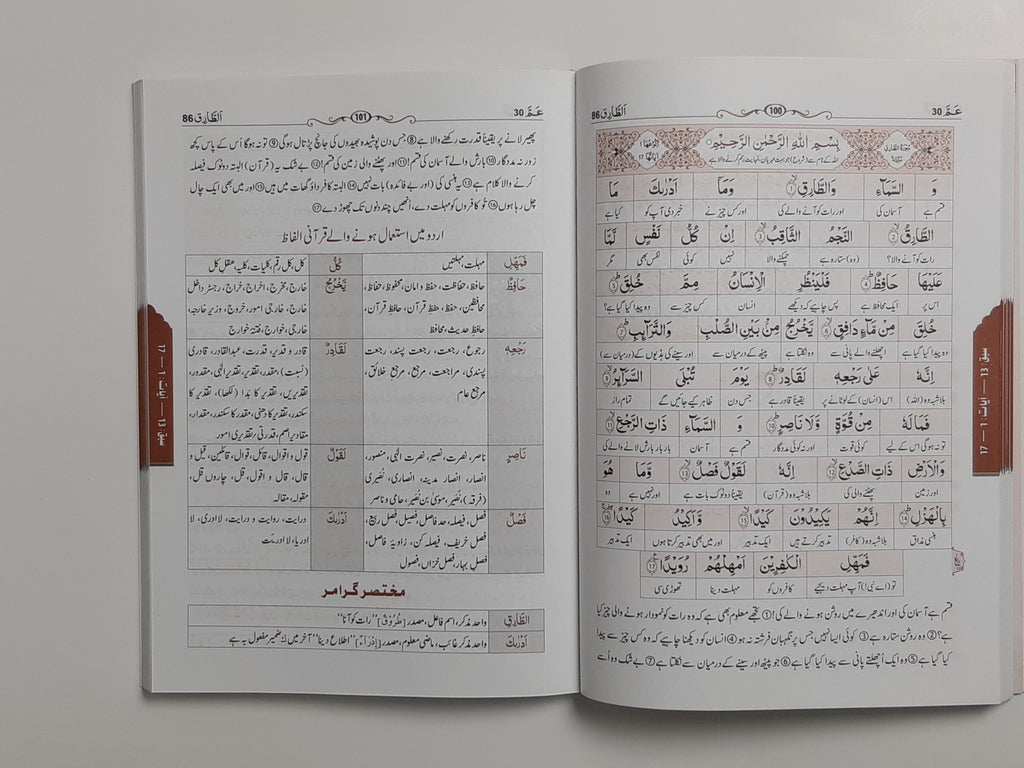 عَمَّ 30
100
اَلطَّارِق 86
سُوْرَةُ الطَّارِقِ مَكِّيَّةٌ
بِسْمِ اللّٰهِ الرَّحْمٰنِ الرَّحِيْمِ
اللہ کے نام سے (شروع) جو بہت مہربان، نہایت رحم کرنے والا ہے
وَ السَّمَآءِ وَالطَّارِقِ ① وَمَآ اَدْرٰىكَ مَا
قسم ہے آسمان کی اور رات کو آنے والے کی اور کس چیز نے خبر دی آپ کو کیا ہے
الطَّارِقُ ② النَّجْمُ الثَّاقِبُ ③ اِنْ كُلُّ نَفْسٍ لَّمَّا
رات کو آنے والا؟ (وہ) ستارہ ہے چمکنے والا نہیں کوئی نفس بھی مگر
عَلَيْهَا حَافِظٌ ④ فَلْيَنْظُرِ الْاِنْسَانُ مِمَّ خُلِقَ ⑤
اس پر ایک محافظ ہے پس چاہیے کہ دیکھے انسان کس چیز سے وہ پیدا کیا گیا ہے؟
خُلِقَ مِنْ مَّآءٍ دَافِقٍ ⑥ يَّخْرُجُ مِنْۢ بَيْنِ الصُّلْبِ وَالتَّرَآئِبِ ⑦
وہ پیدا کیا گیا ہے اچھلنے والے پانی سے وہ نکلتا ہے پیٹھ کے درمیان سے اور سینے کی ہڈیوں کے (درمیان سے)
اِنَّهٗ عَلٰى رَجْعِهٖ لَقَادِرٌ ⑧ يَوْمَ تُبْلَى السَّرَآئِرُ ⑨
بلاشبہ وہ (اللہ) اس (انسان) کے لوٹانے پر یقیناً قادر ہے جس دن ظاہر کیے جائیں گے تمام راز
فَمَا لَهٗ مِنْ قُوَّةٍ وَّلَا نَاصِرٍ ⑩ وَ السَّمَآءِ ذَاتِ الرَّجْعِ ⑪
تو نہ ہوگی اس کے لیے کوئی قوت اور نہ کوئی مددگار قسم ہے آسمان بار بار بارش لانے والے کی
وَالْاَرْضِ ذَاتِ الصَّدْعِ ⑫ اِنَّهٗ لَقَوْلٌ فَصْلٌ ⑬ وَّمَا هُوَ
اور زمین پھٹنے والی کی بلاشبہ وہ (قرآن) یقیناً دوٹوک بات ہے اور نہیں ہے وہ
بِالْهَزْلِ ⑭ اِنَّهُمْ يَكِيْدُوْنَ كَيْدًا ⑮ وَّاَكِيْدُ كَيْدًا ⑯
ہنسی مذاق بلاشبہ وہ (کافر) تدبیر کرتے ہیں ایک تدبیر اور میں بھی تدبیر کرتا ہوں ایک تدبیر
فَمَهِّلِ الْكٰفِرِيْنَ اَمْهِلْهُمْ رُوَيْدًا ⑰
تو (اے نبی!) آپ مہلت دیجیے کافروں کو مہلت دینا تھوڑی سی
قسم ہے آسمان کی اور اندھیرے میں روشن ہونے والے کی! ① تجھے معلوم بھی ہے کہ وہ رات کو نمودار ہونے والی چیز کیا
ہے؟ ② وہ روشن ستارہ ہے ③ کوئی ایسا نہیں جس پر نگہبان فرشتہ نہ ہو ④ انسان کو دیکھنا چاہیے کہ وہ کس چیز سے پیدا
کیا گیا ہے ⑤ وہ ایک اُچھلتے پانی سے پیدا کیا گیا ہے ⑥ جو پیٹھ اور سینے کے درمیان سے نکلتا ہے ⑦ بے شک وہ اُسے
سبق: 13 — آیات: 1 — 17
عَمَّ 30
101
اَلطَّارِق 86
پھیر لانے پر یقیناً قدرت رکھنے والا ہے ⑧ جس دن پوشیدہ بھیدوں کی جانچ پڑتال ہوگی ⑨ تو نہ ہوگا اُس کے پاس کچھ
زور نہ مددگار ⑩ بارش والے آسمان کی قسم! ⑪ اور پھٹنے والی زمین کی قسم! ⑫ بے شک یہ (قرآن) البتہ دوٹوک فیصلہ
کرنے والا کلام ہے ⑬ یہ ہنسی کی (اور بے فائدہ) بات نہیں ⑭ البتہ کافر داؤ گھات میں ہیں ⑮ اور میں بھی ایک چال
چل رہا ہوں ⑯ تُو کافروں کو مہلت دے، اُنھیں چند دنوں تک چھوڑ دے ⑰
اردو میں استعمال ہونے والے قرآنی الفاظ
فَمَهِّلِ مہلت، مہلتیں كُلُّ کل، کل رقم، کلیات، کلیہ، عقل کل
حَافِظٌ حافظ، حفاظت، حفظ و امان، محفوظ، حفاظ يَّخْرُجُ خارج، خرج، اخراج، خراج، رجسٹر داخل
محافظین، حفظ، حفظِ قرآن، حافظِ قرآن، خارج، خارجی امور، خروج، وزیر خارجہ،
حافظِ حدیث، محافظ خارجی، خوارج، فتنۂ خوارج
رَجْعِهٖ رجوع، رجعت، رجعت پسند، رجعت لَقَادِرٌ قادر و قدیر، قدرت، عبدالقادر، قادری
پسندی، مراجعت، مرجع، مرجع خلائق، (نسبت)، مقدر، تقدیر، تقدیرِ الٰہی، مقدور،
مرجع عام تقدیریں، تقدیر کا بَدا (لکھا)، تقدیر کا
سکندر، تقدیر کا دھنی، مقدر کا سکندر، مقدار،
مقادیر اہم، قدرتی، تقدیری امور
نَاصِرٍ ناصر، نصرت، نصیر، نصرت الٰہی، منصور، لَقَوْلٌ قول و اقوال، قائل، قوال، قائلین، قیل و
انصار، انصار مدینہ، انصاری، نصیری قال، قال و اقول، قُل، چاروں قل،
(فرقہ)، نُصَیر، موسیٰ بن نصیر، حامی و ناصر مقولہ، مقالہ
فَصْلٌ فصل، فیصلہ، حد فاصل، فصیل، فصل ربیع، اَدْرٰىكَ درایت، روایت و درایت، لا ادری، لا
فصل خریف، فیصلہ کن، زاویۂ فاصل، ادریا، لا ادریت
فصل بہار، فصل خزاں، فصول
مختصر گرامر
الطَّارِقِ واحد مذکر، اسم فاعل، مصدر [طُرُوْقٌ] "رات کو آنا"
اَدْرٰىكَ واحد مذکر غائب، ماضی معلوم، مصدر [اِدْرَاءٌ] "اطلاع دینا" آخر میں كَ ضمیر مفعول بہ ہے
سبق: 13 — آیات: 1 — 17